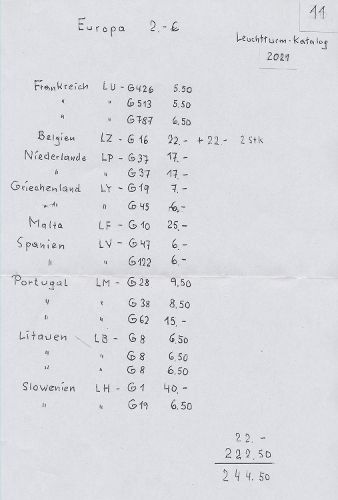 11
Europa 2.-€
Leuchtturm-Katalog
2021
Frankreich LU - G426 5.50
" " G513 5.50
" " G787 6.50
Belgien LZ - G16 22.- + 22.- 2 Stk
Niederlande LP - G37 17.-
" " G37 17.-
Griechenland LY - G19 7.-
" " G45 6.-
Malta LF - G10 25.-
Spanien LV - G47 6.-
" G122 6.-
Portugal LM - G28 9,50
" " G38 8,50
" " G62 15.-
Litauen LB - G8 6,50
" " G8 6,50
" " G8 6.50
Slowenien LH - G1 40.-
" " G19 6.50
22.-
222.50
244.50